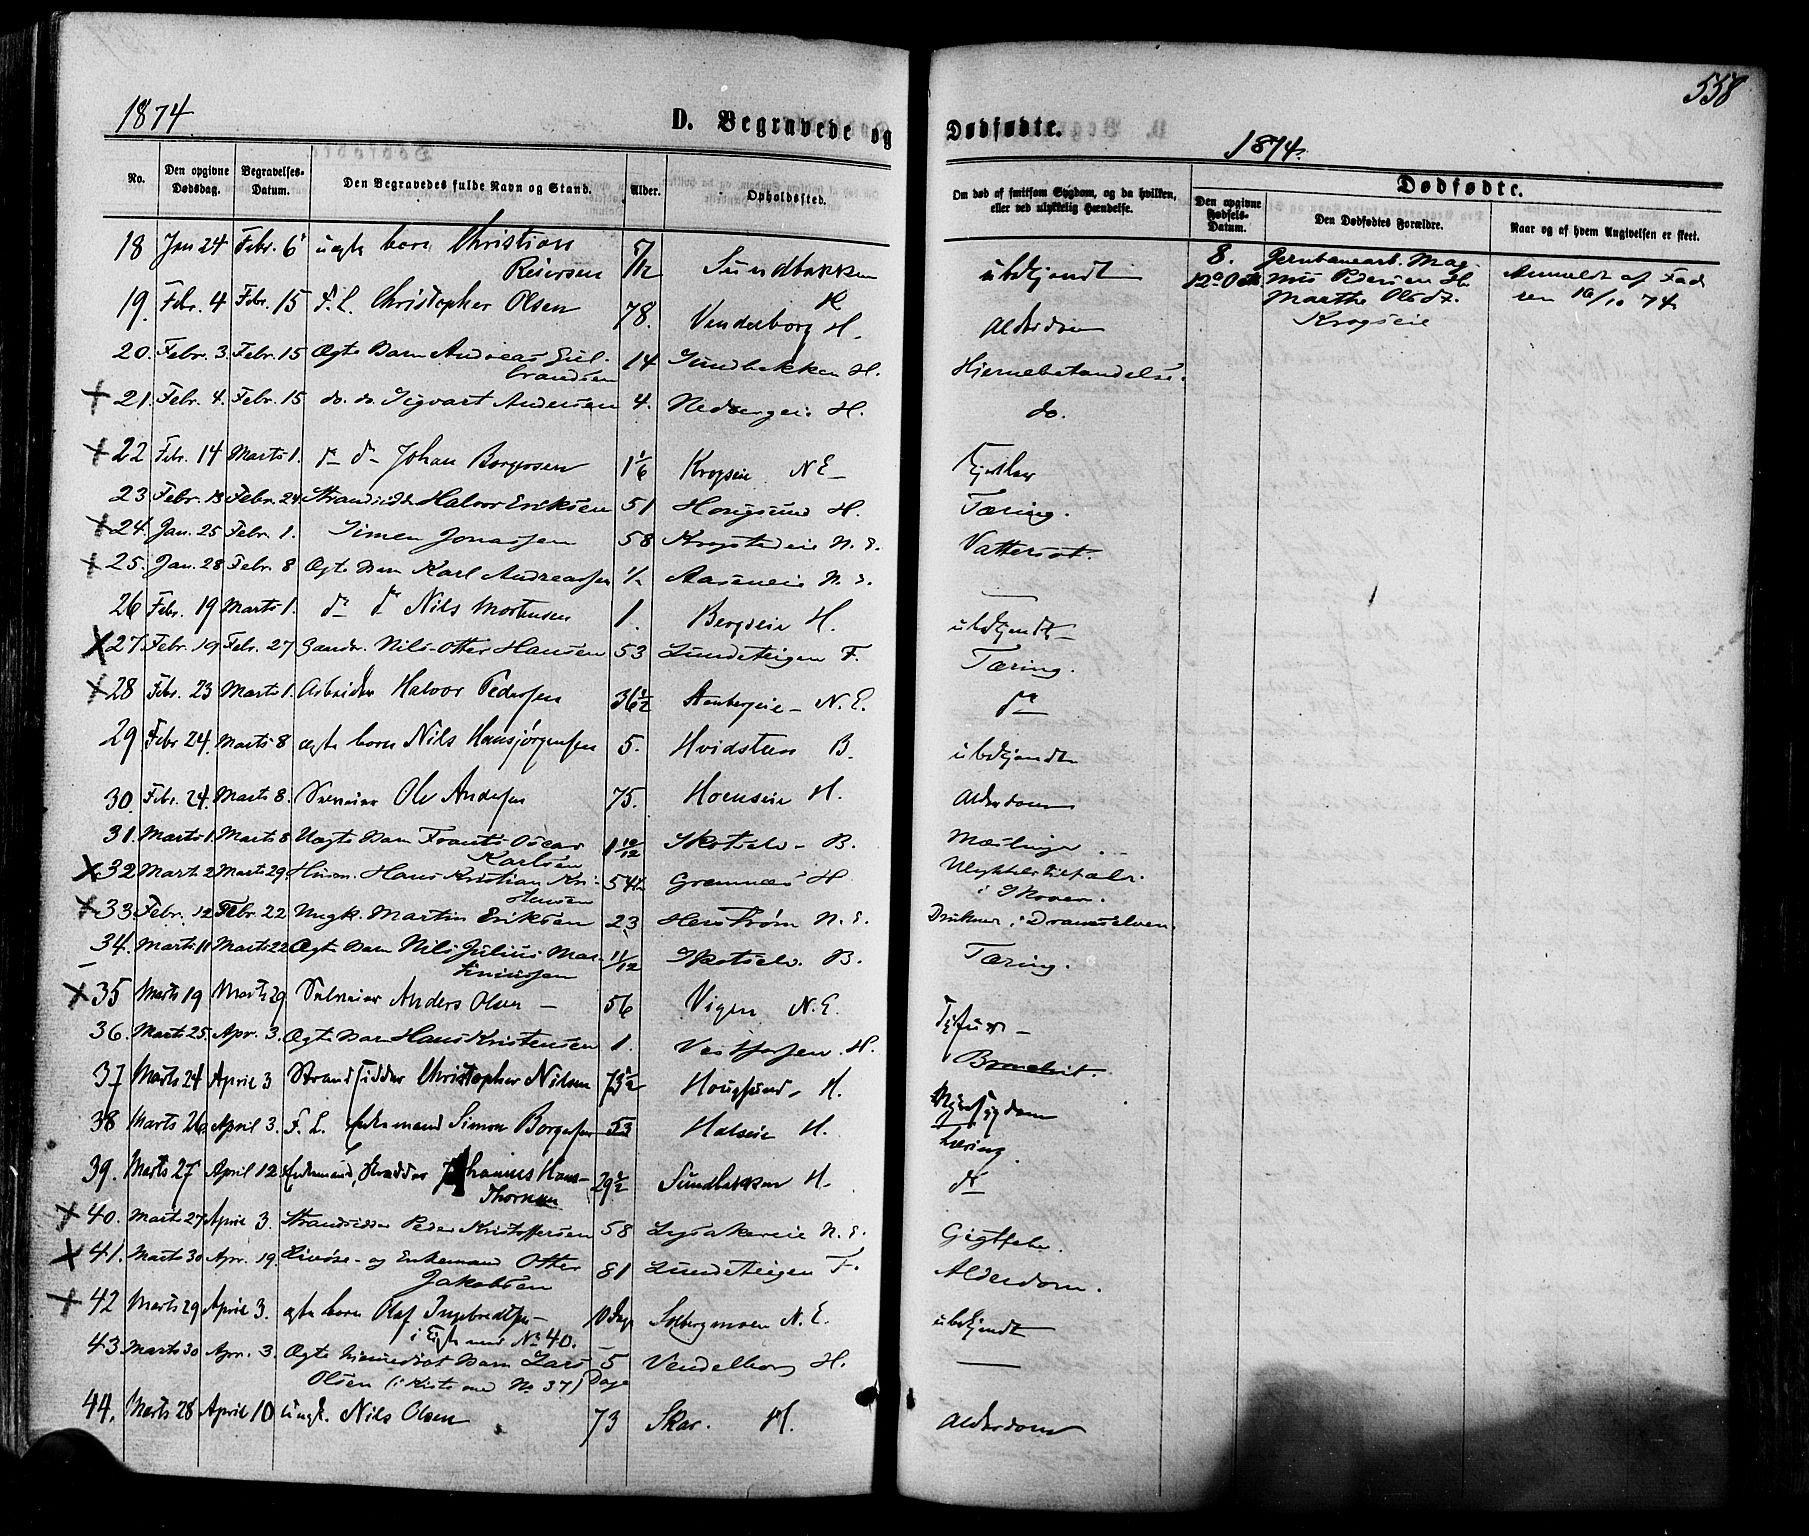 1874.
D. Begravede og
Dødfødte.
1874.
558
No.
Den opgivne Dødsdag.
Begravelses-Datum.
Den Begravedes fulde Navn og Stand.
Alder.
Opholdssted.
Om død af smitsom Sygdom, og da hvilken, eller ved ulykkelig Hændelse.
Dødfødte.
Den opgivne Fødsels-Datum.
Den Dødfødtes Forældre.
Naar og af hvem Angivelsen er skeet.
18 Jan 24 Febr. 6 uægte barn Christian Reiersen 5/12 Sundbakken H ubekjendt
8. Jernbanearb. Mag-
12te Oct nus Pedersen H Anmeldt af Fad
Marthe Olsdt. ren 16/10 74
Krogseie
19. Febr. 4 Febr. 15 F. L. Christopher Olsen 78. Vendelborg H. Alderdom
20. Febr. 3. Febr. 15 Ægte Barn Andreas Gulbrandsen 14 Sundbakken H. Hjernebetændelse.
21. Febr. 4. Febr. 15 do. do. Sigvart Andersen 4. Nedbergeie H. do.
22 Febr. 14 Marts 1. do do Johan Borgersen 1 1/6 Krogseie N E
23 Febr. 18 Febr. 24 Strandsidder Halvor Eriksen 51 Hougsund H. Tæring.
24. Jan. 25 Febr. 1. Simen Jonassen 58 Krogstadeie N. E. Vattersot.
25. Jan. 28 Febr. 8 Ægte Barn Karl Andreassen 1/2 Aaseneie N. E. —
26 Febr. 19 Marts 1. do do Nils Mortensen 1. Bergseie H. ubekjendt
27 Febr. 19 Febr. 27 Gaardbr. Nils Otter Hansen 53 Lundeteigen F. Tæring.
28 Febr. 23 Marts 1. Arbeider Halvor Pedersen 36 1/2 Stenbergeie N. E. do
29 Febr 24. Marts 8 ægte barn Nils Hansjørgensen 5. Hvidsteen B. ubekjendt
30. Febr. 24. Marts 8. Selveier Ole Andersen 75. Hornseie H. Alderdom
31. Marts 1. Marts 8 Uægte Barn Frants Oscar Karlsen 1 10/12 Skotselv B. Mæslinger
32 Marts 2 Marts 29. Husm. Hans Kristian Kristensen 54 1/2 Gromnæs H Ulykkestilfælde i Skoven.
33. Febr. 12 Febr. 22 Ungk. Martin Eriksen 23 Herstrøm N. E. Druknet i Dramselven.
34. Marts 11 Marts 22 Ægte Barn Nils Julius Martiniussen 11/12 Skotselv. B. Tæring.
35 Marts 19 Marts 29 Selveier Anders Olsen — 56 Vigen N. E. Tyfus —
36. Marts 25. Apr. 3. Ægte Barn Hans Kristensen 1. Vestfossen H.
37 Marts 24 April 3 Strandsidder Christopher Nilsen 73 1/2 Hougsund H.
38 Marts 26. April 3. F. L. Enkemand Simon Borgersen 53 Halseie H. Tæring.
39. Marts 27 April 12 Enkemand, Skrædder Johannes Hans-Thorsen 29 1/2 Sundbakken H. do
40. Marts 27 April 3. Strandsidder Peder Kristoffersen 58 Lysakereie N. E. Gigtfeber.
41. Marts 30 Apr. 19. Livøre- og Enkemand Otter Jakobsen 81 Lundeteigen F. Alderdom.
42 Marts 29 April 3. ægte barn Olaf Ingebredtsen 10 Dage Solbergmoen N. E. ubekjendt
i Kiste med No 40.
43 Marts 30 Apr. 3. Ægte hjemmedøbt Barn Lars Olsen (i Kiste med No 37) 5 Dage Vendelborg H. —
44. Marts 28 April 10 Ungk. Nils Olsen 73 Skar. H. Alderdom